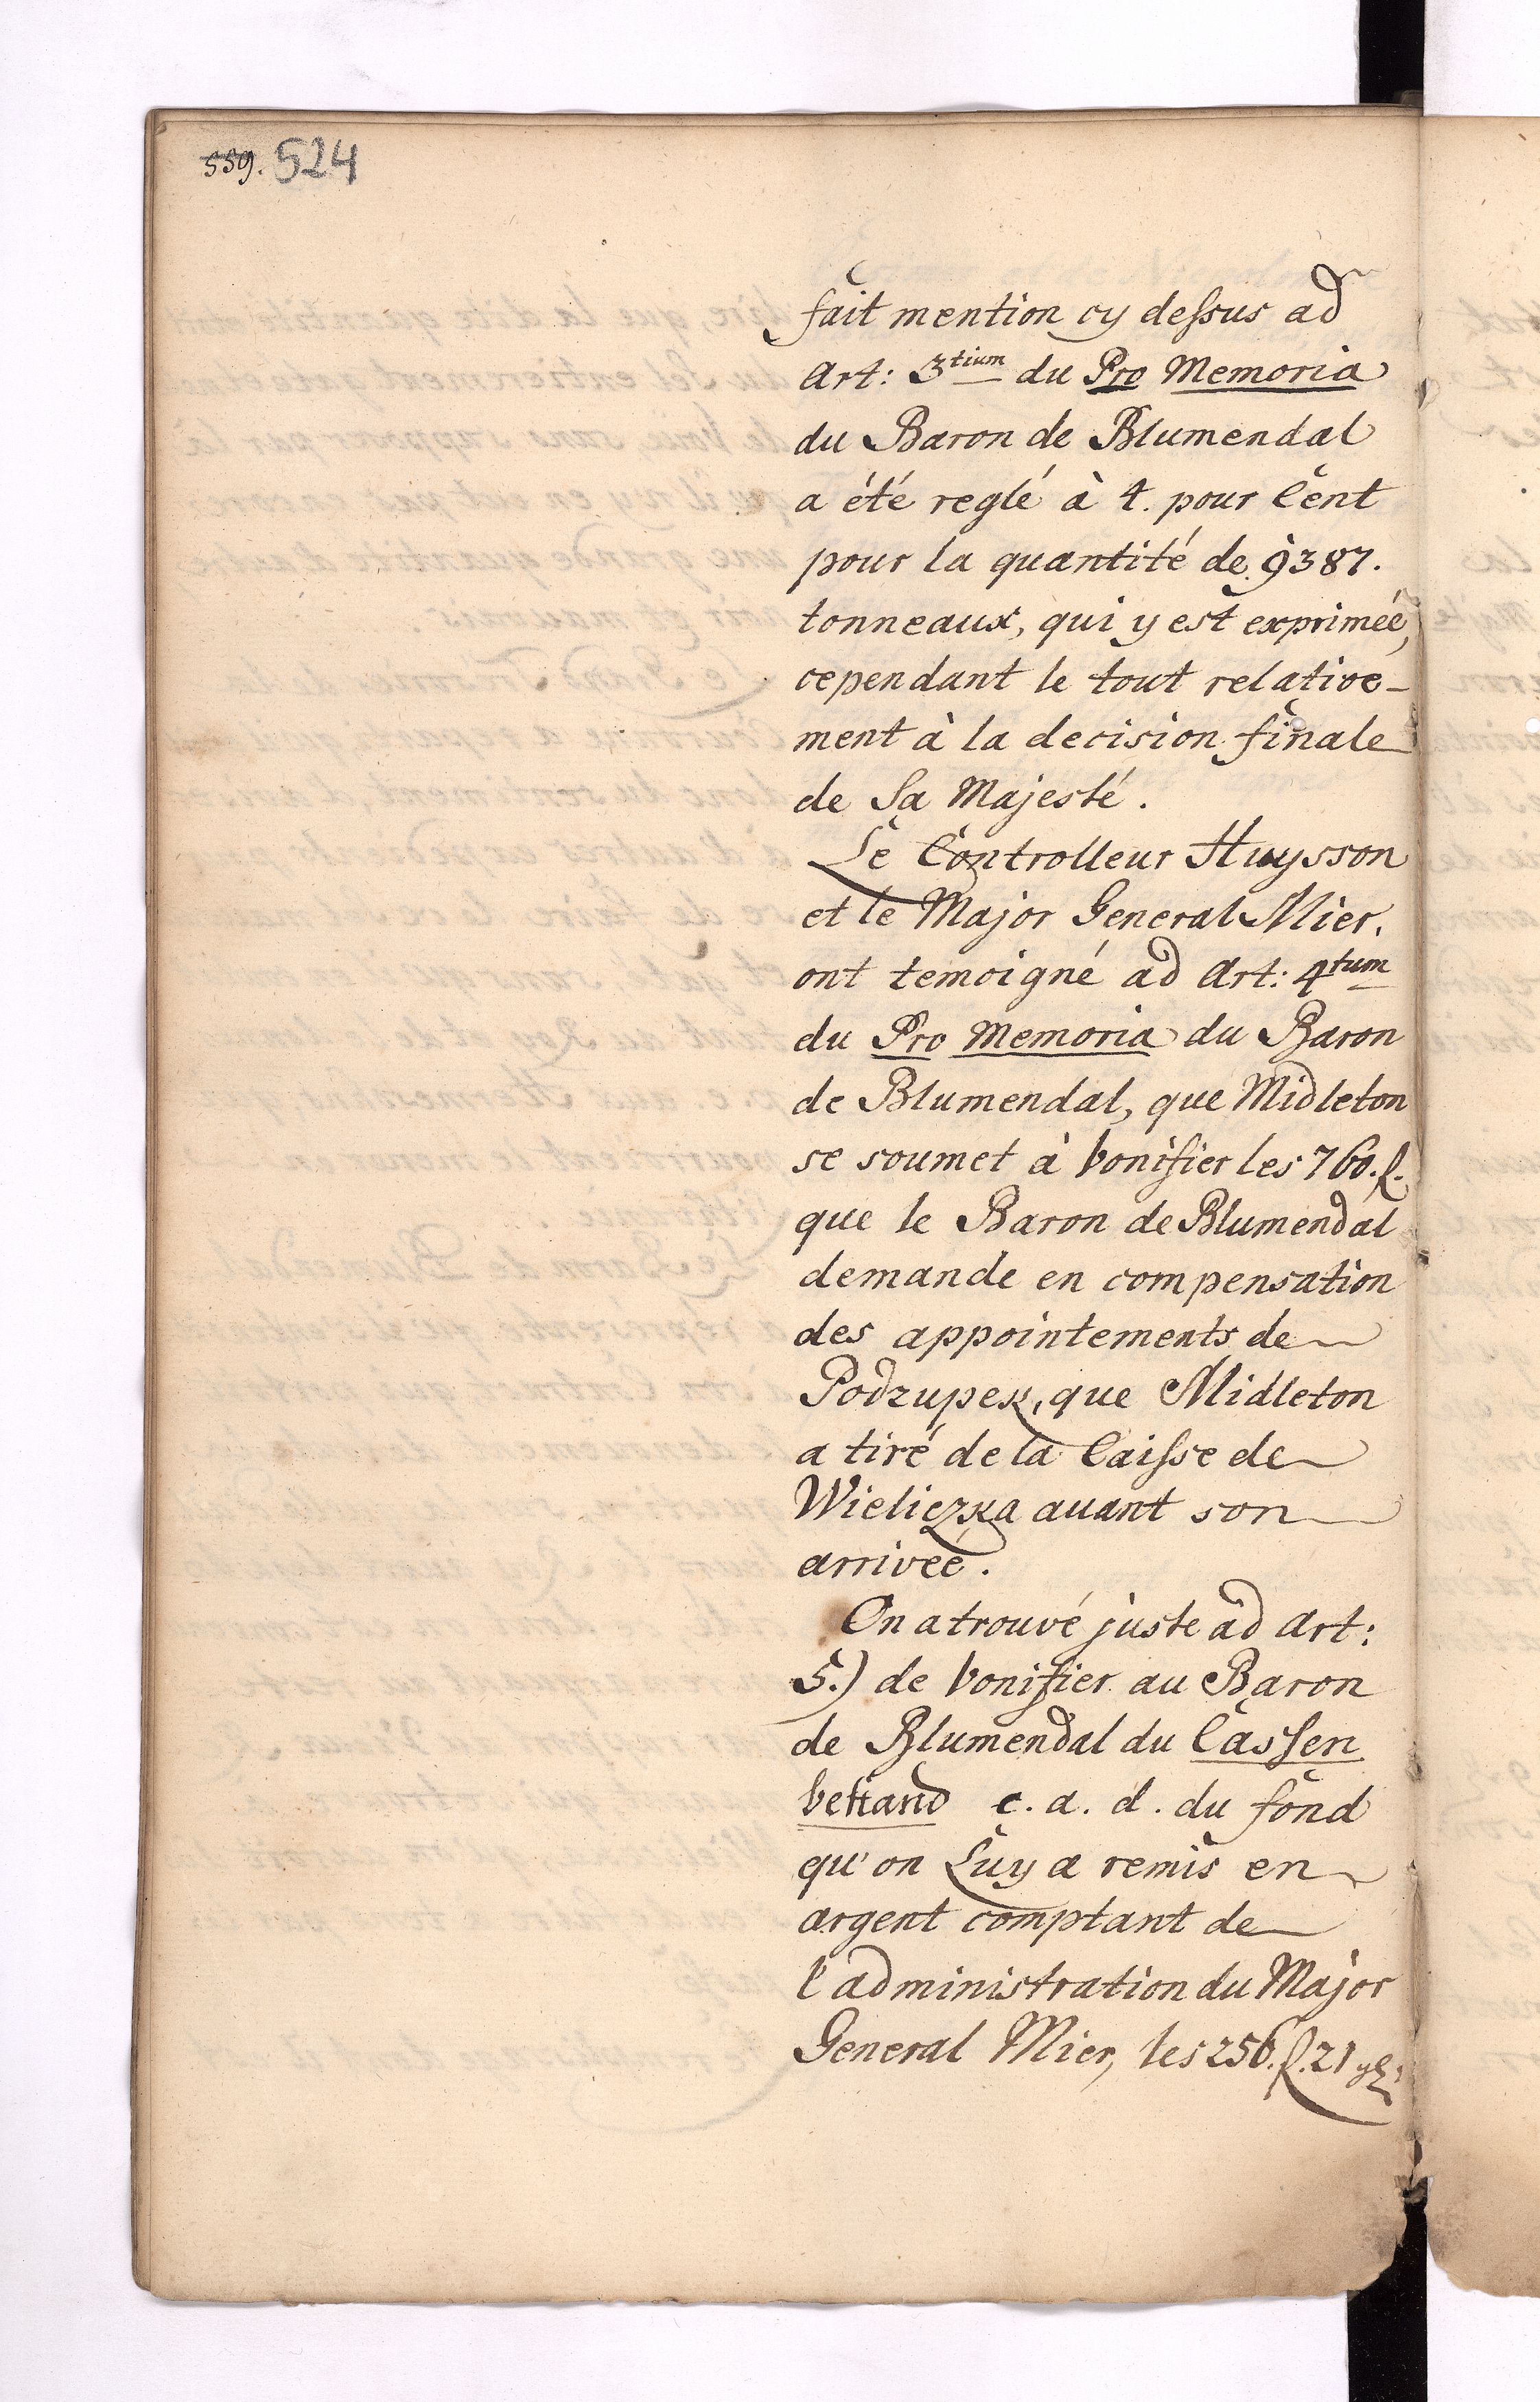 559. 524
fait mention cy dessus ad
Art: 3tium du Pro Memoria
du Baron de Blumendal
a été reglé à 4. pour Cent
pour la quantité de 9387.
tonneaux, qui y est exprimée,
cependant le tout relative-
ment à la decision finale
de Sa Majesté.
Le Controlleur Huysson
et le Major General Mier.
ont temoigné ad Art: 4tum
du Pro Memoria du Baron
de Blumendal, que Midleton
se soumet à bonifier les 760. f.
que le Baron de Blumendal
demande en compensation
des appointements de
Podzupek, que Midleton
a tiré de la Caisse de
Wieliczka avant son
arriveé.
On a trouvé juste ad Art:
5.) de bonifier au Baron
de Blumendal du Cassen
bestand c. a. d. du fond
qu'on Luy a remis en
argent comptant de
l'administration du Major
General Mier, les 256. f. 21